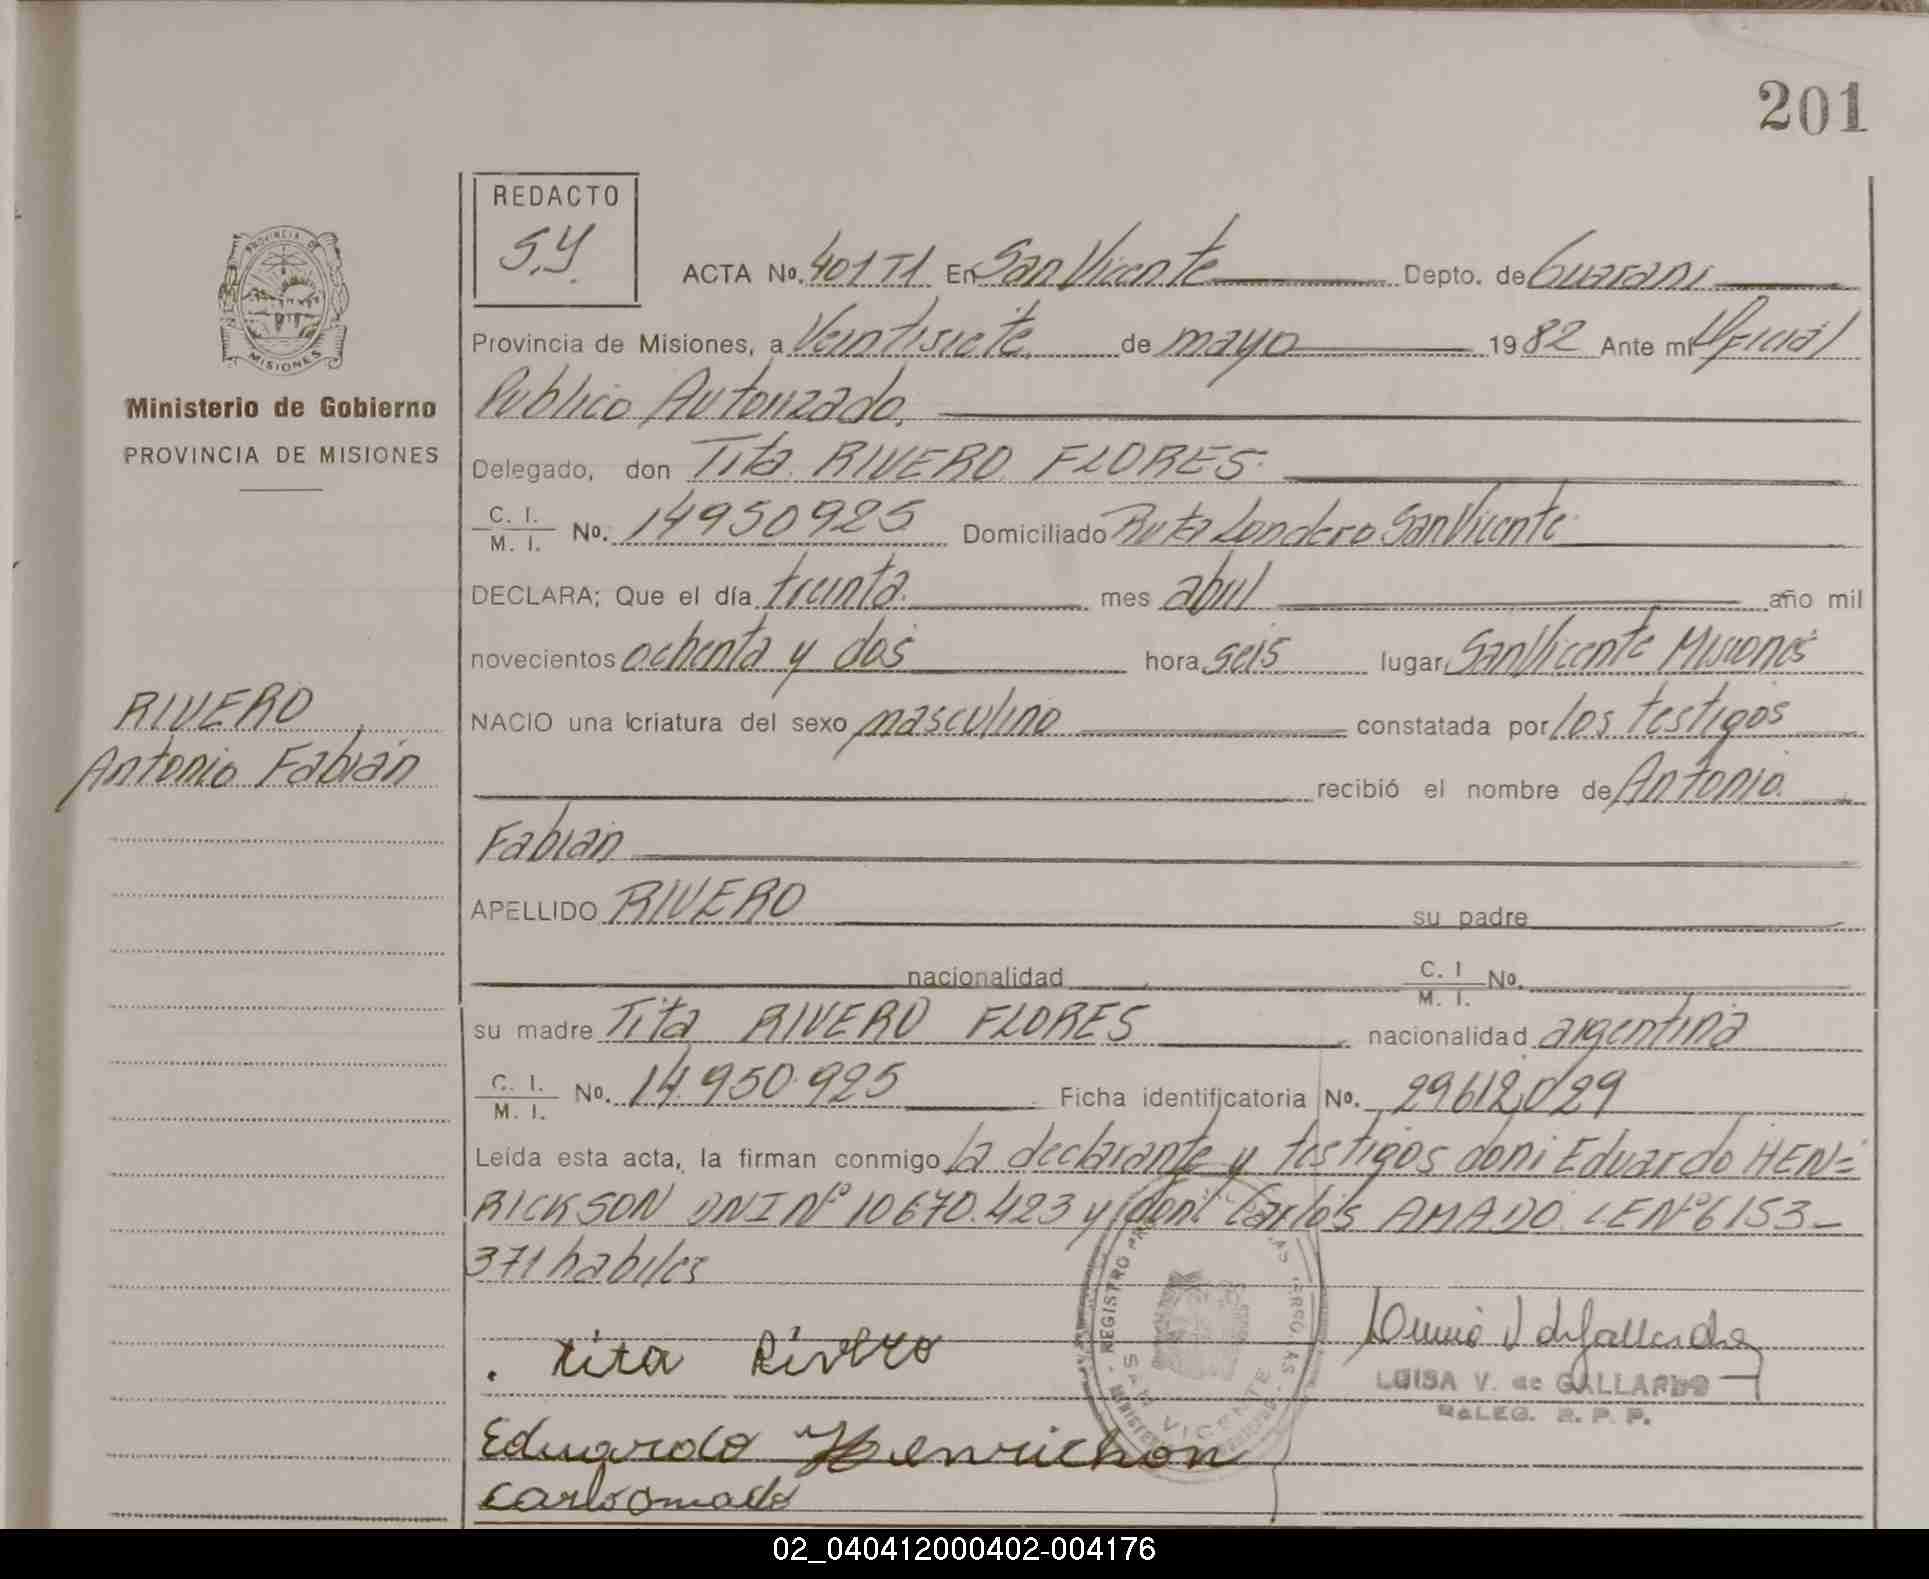 201
REDACTO
S.Y.
ACTA No. 401 T1 En San Vicente Depto. de Guarani
Provincia de Misiones, a Veintisiete de mayo 1982 Ante mi Oficial
Publico Autorizado.
Ministerio de Gobierno
PROVINCIA DE MISIONES
Delegado, don Tita RIVERO FLORES
C. I. / M. I. No. 14950925 Domiciliado Ruta Londero San Vicente
DECLARA; Que el día treinta mes abril año mil
novecientos ochenta y dos hora seis lugar San Vicente Misiones
RIVERO
Antonio Fabián
NACIO una criatura del sexo masculino constatada por los testigos
recibió el nombre de Antonio
Fabián
APELLIDO RIVERO su padre
nacionalidad C. I / M. I. No.
su madre Tita RIVERO FLORES nacionalidad argentina
C. I. / M. I. No. 14.950.925 Ficha identificatoria No. 29612029
Leída esta acta, la firman conmigo la declarante y testigos don: Eduardo HEN=
RICKSON DNI Nº 10670.423 y don: Carlos AMADO LE Nº 6153-
371 habiles
Tita Rivero
LUISA V. de GALLARDO
DELEG. R. P. P.
Eduardo Henrichon
SAN VICENTE
02_040412000402-004176